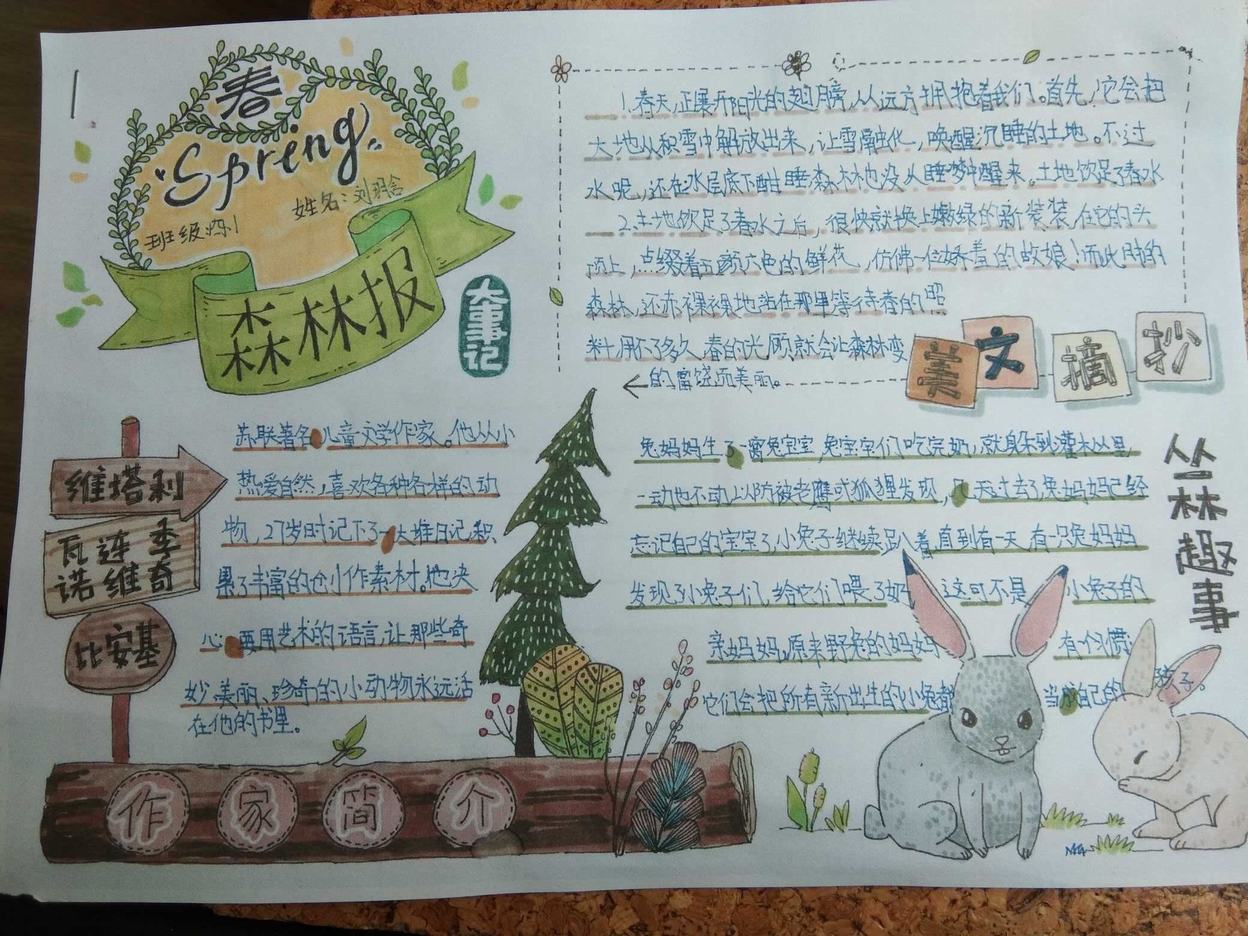 春
Spring
班级:
姓名:刘
森林报
大事记
1.春天,正展开阳光的翅膀,从远方拥抱着我们。首先,它会把
大地从积雪中解放出来,让雪融化,唤醒沉睡的土地。不过
水呢,还在水层底下酣睡森林也没从睡梦中醒来。土地饮足了春水
2.土地饮足了春水之后,很快就换上嫩绿的新装装,在它的头
顶上,点缀着五颜六色的鲜花,仿佛一位娇羞的故娘!而此时的
森林,还赤裸裸地站在那里等待春的照
料,用不了多久,春的光顾就会让森林变
的富饶而美丽。
美文摘抄
维塔利
瓦连季
诺维奇
比安基
苏联著名儿童文学作家。他从小
热爱自然,喜欢各种各样的动
物,27岁时记下了一大堆日记,积
累了丰富的仓小作素材。他决
心要用艺术的语言,让那些奇
妙、美丽、珍奇的小动物永远活
在他的书里。
作家简介
丛林趣事
兔妈妈生了一窝兔宝宝,兔宝宝们吃完奶,就躲到灌木丛里,
一动也不动上以防被老鹰或狐狸发现,几天过去了兔妈妈已经
忘记自己的宝宝了,小兔子继续趴着,直到有一天,有一只兔妈妈
发现了小兔子们,给它们喂了奶 这可不是 小兔子的
亲妈妈,原来野兔的妈妈 有个习惯:
它们会把所有新出生的小兔都 当成自己的 孩子。